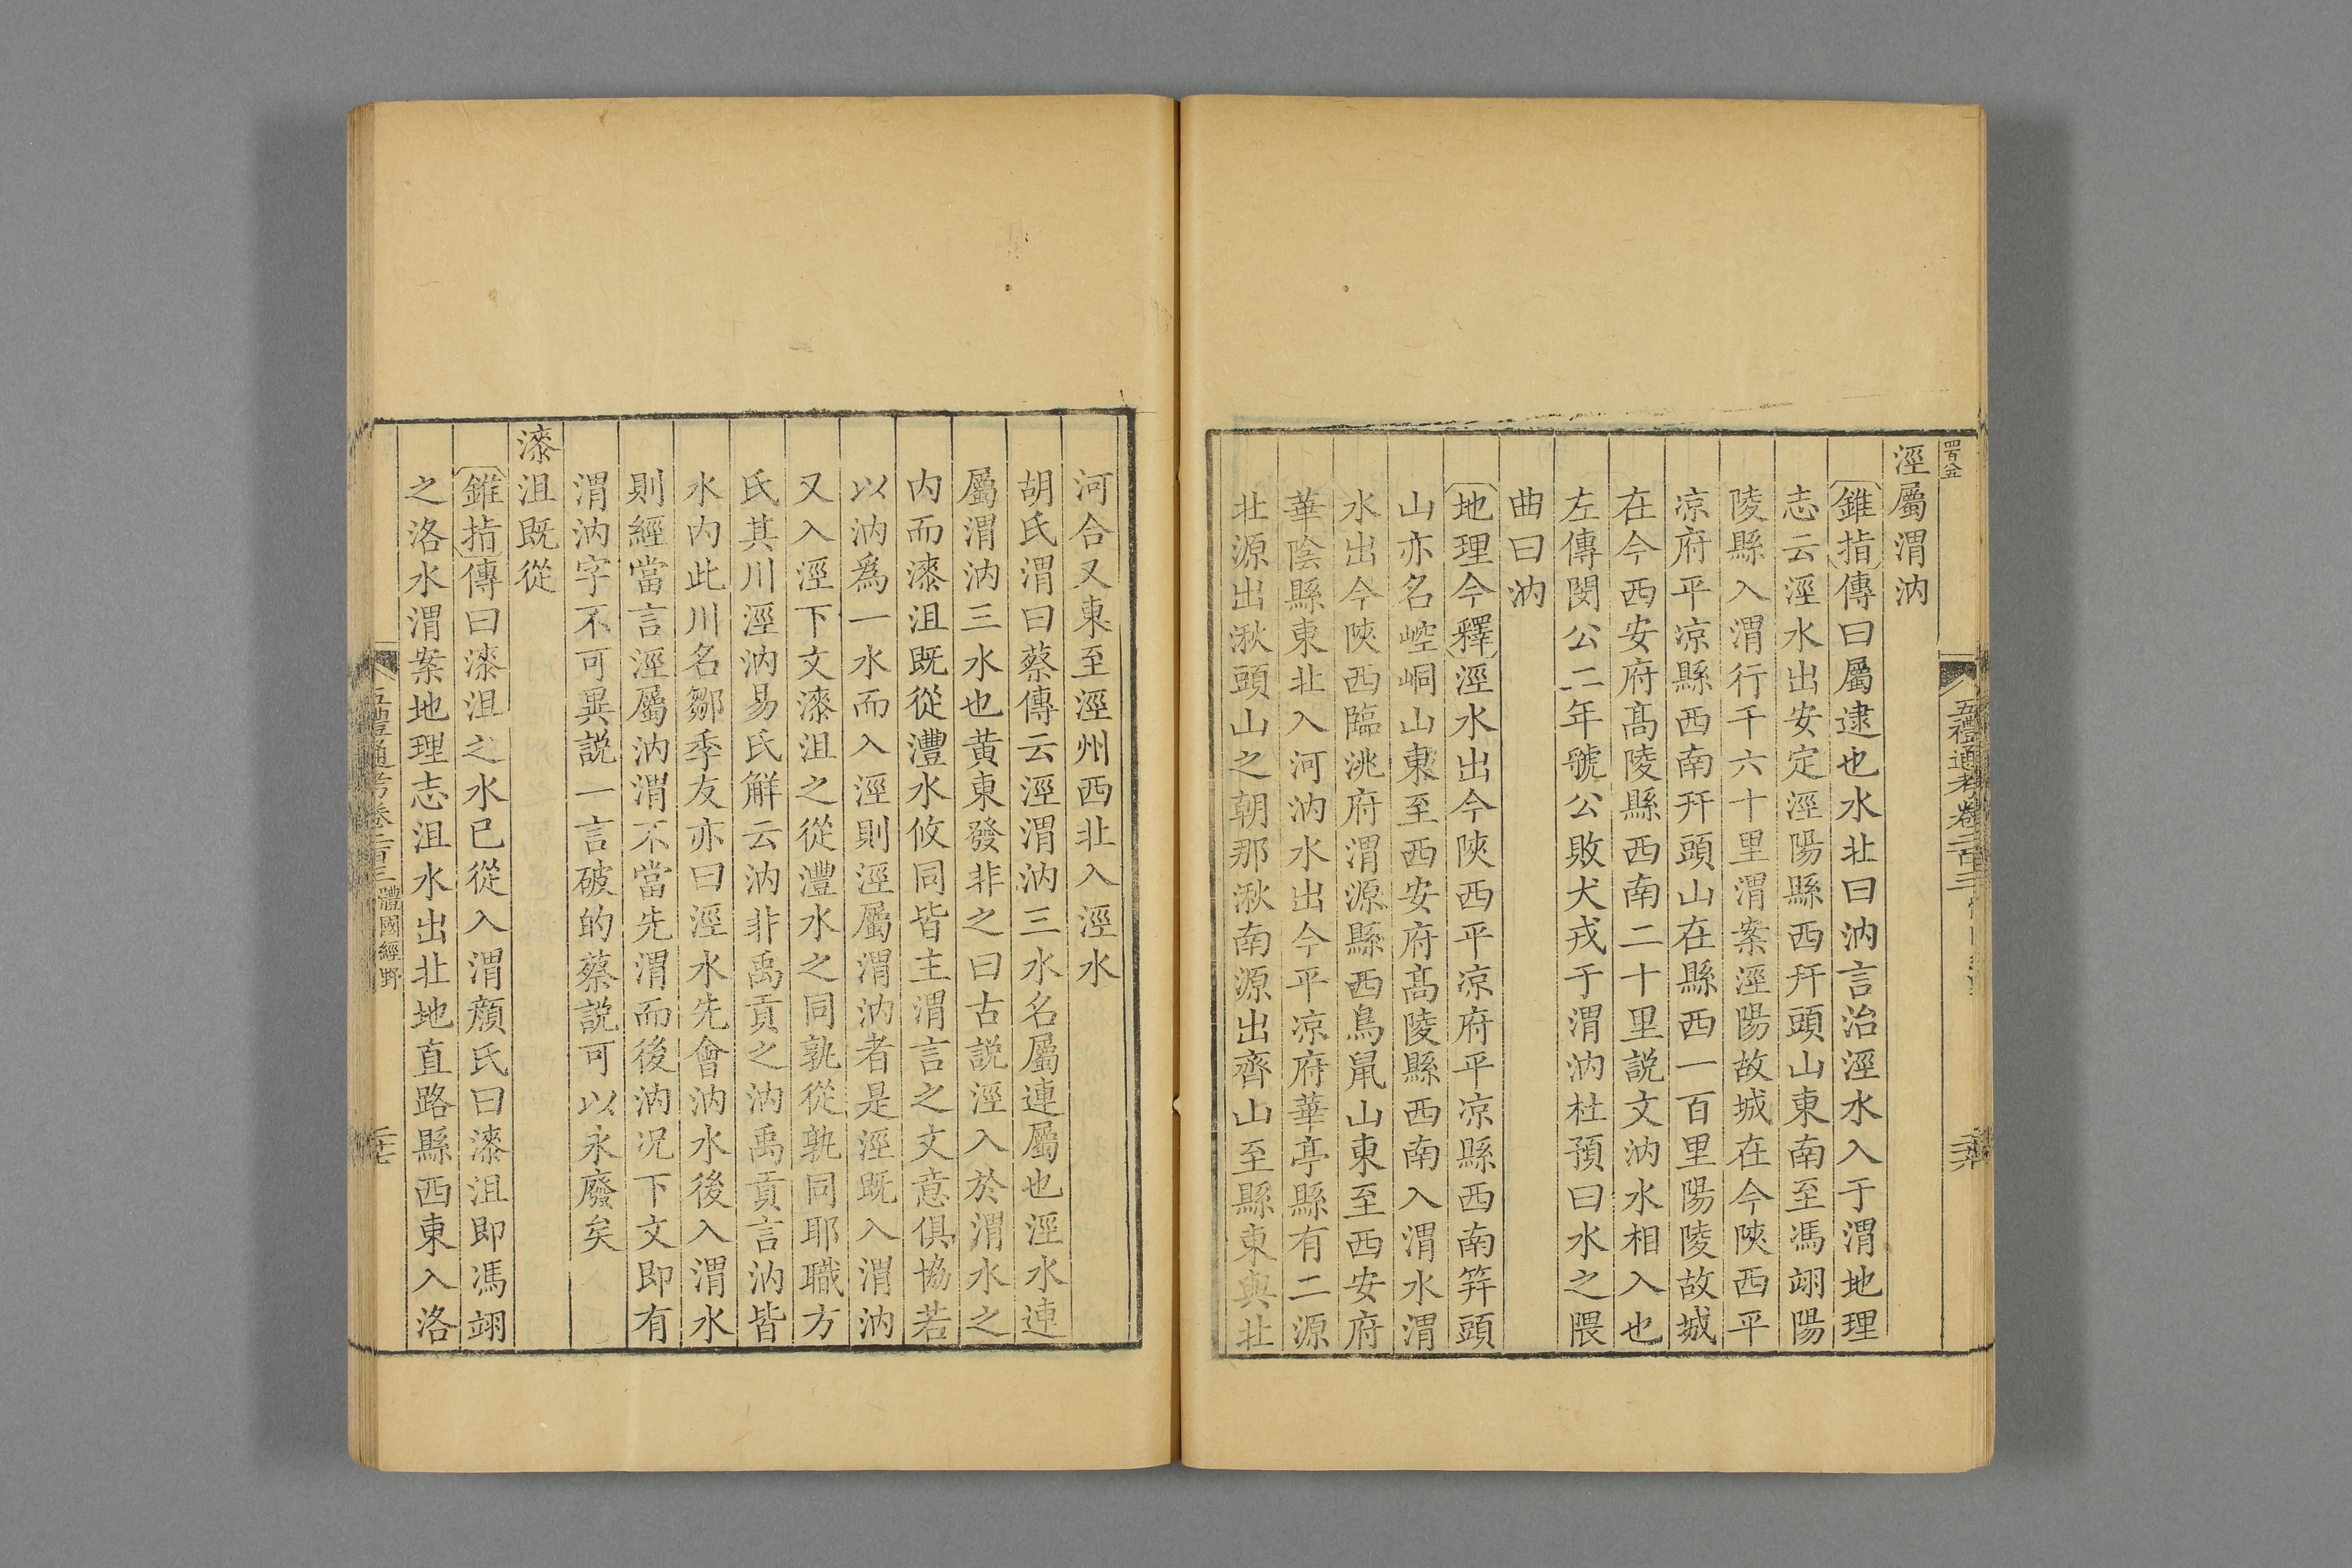 五禮通考卷二百三
涇屬渭汭
錐指傳曰屬逮也水北曰汭言治涇水入于渭地理
志云涇水出安定涇陽縣西幵頭山東南至馮翊陽
陵縣入渭行千六十里渭案涇陽故城在今陝西平
凉府平凉縣西南幵頭山在縣西一百里陽陵故城
在今西安府髙陵縣西南二十里説文汭水相入也
左傳閔公二年虢公敗犬戎于渭汭杜預曰水之隈
曲曰汭
地理今釋涇水出今陝西平凉府平凉縣西南筓頭
山亦名崆峒山東至西安府髙陵縣西南入渭水渭
水出今陝西臨洮府渭源縣西鳥鼠山東至西安府
華陰縣東北入河汭水出今平凉府華亭縣有二源
北源出湫頭山之朝那湫南源出齊山至縣東與北
河合又東至涇州西北入涇水
胡氏渭曰蔡傳云涇渭汭三水名屬連屬也涇水連
屬渭汭三水也黄東發非之曰古説涇入於渭水之
内而漆沮既從灃水攸同皆主渭言之文意俱恊若
以汭爲一水而入涇則涇屬渭汭者是涇既入渭汭
又入涇下文漆沮之從灃水之同孰從孰同耶職方
氏其川涇汭易氏解云汭非禹貢之汭禹貢言汭皆
水内此川名鄒季友亦曰涇水先會汭水後入渭水
則經當言涇屬汭渭不當先渭而後汭况下文即有
渭汭字不可異説一言破的蔡説可以永廢矣
漆沮既從
錐指傳曰漆沮之水已從入渭顔氏曰漆沮即馮翊
之洛水渭案地理志沮水出北地直路縣西東入洛
五禮通考卷二百三 體國經野 二十七